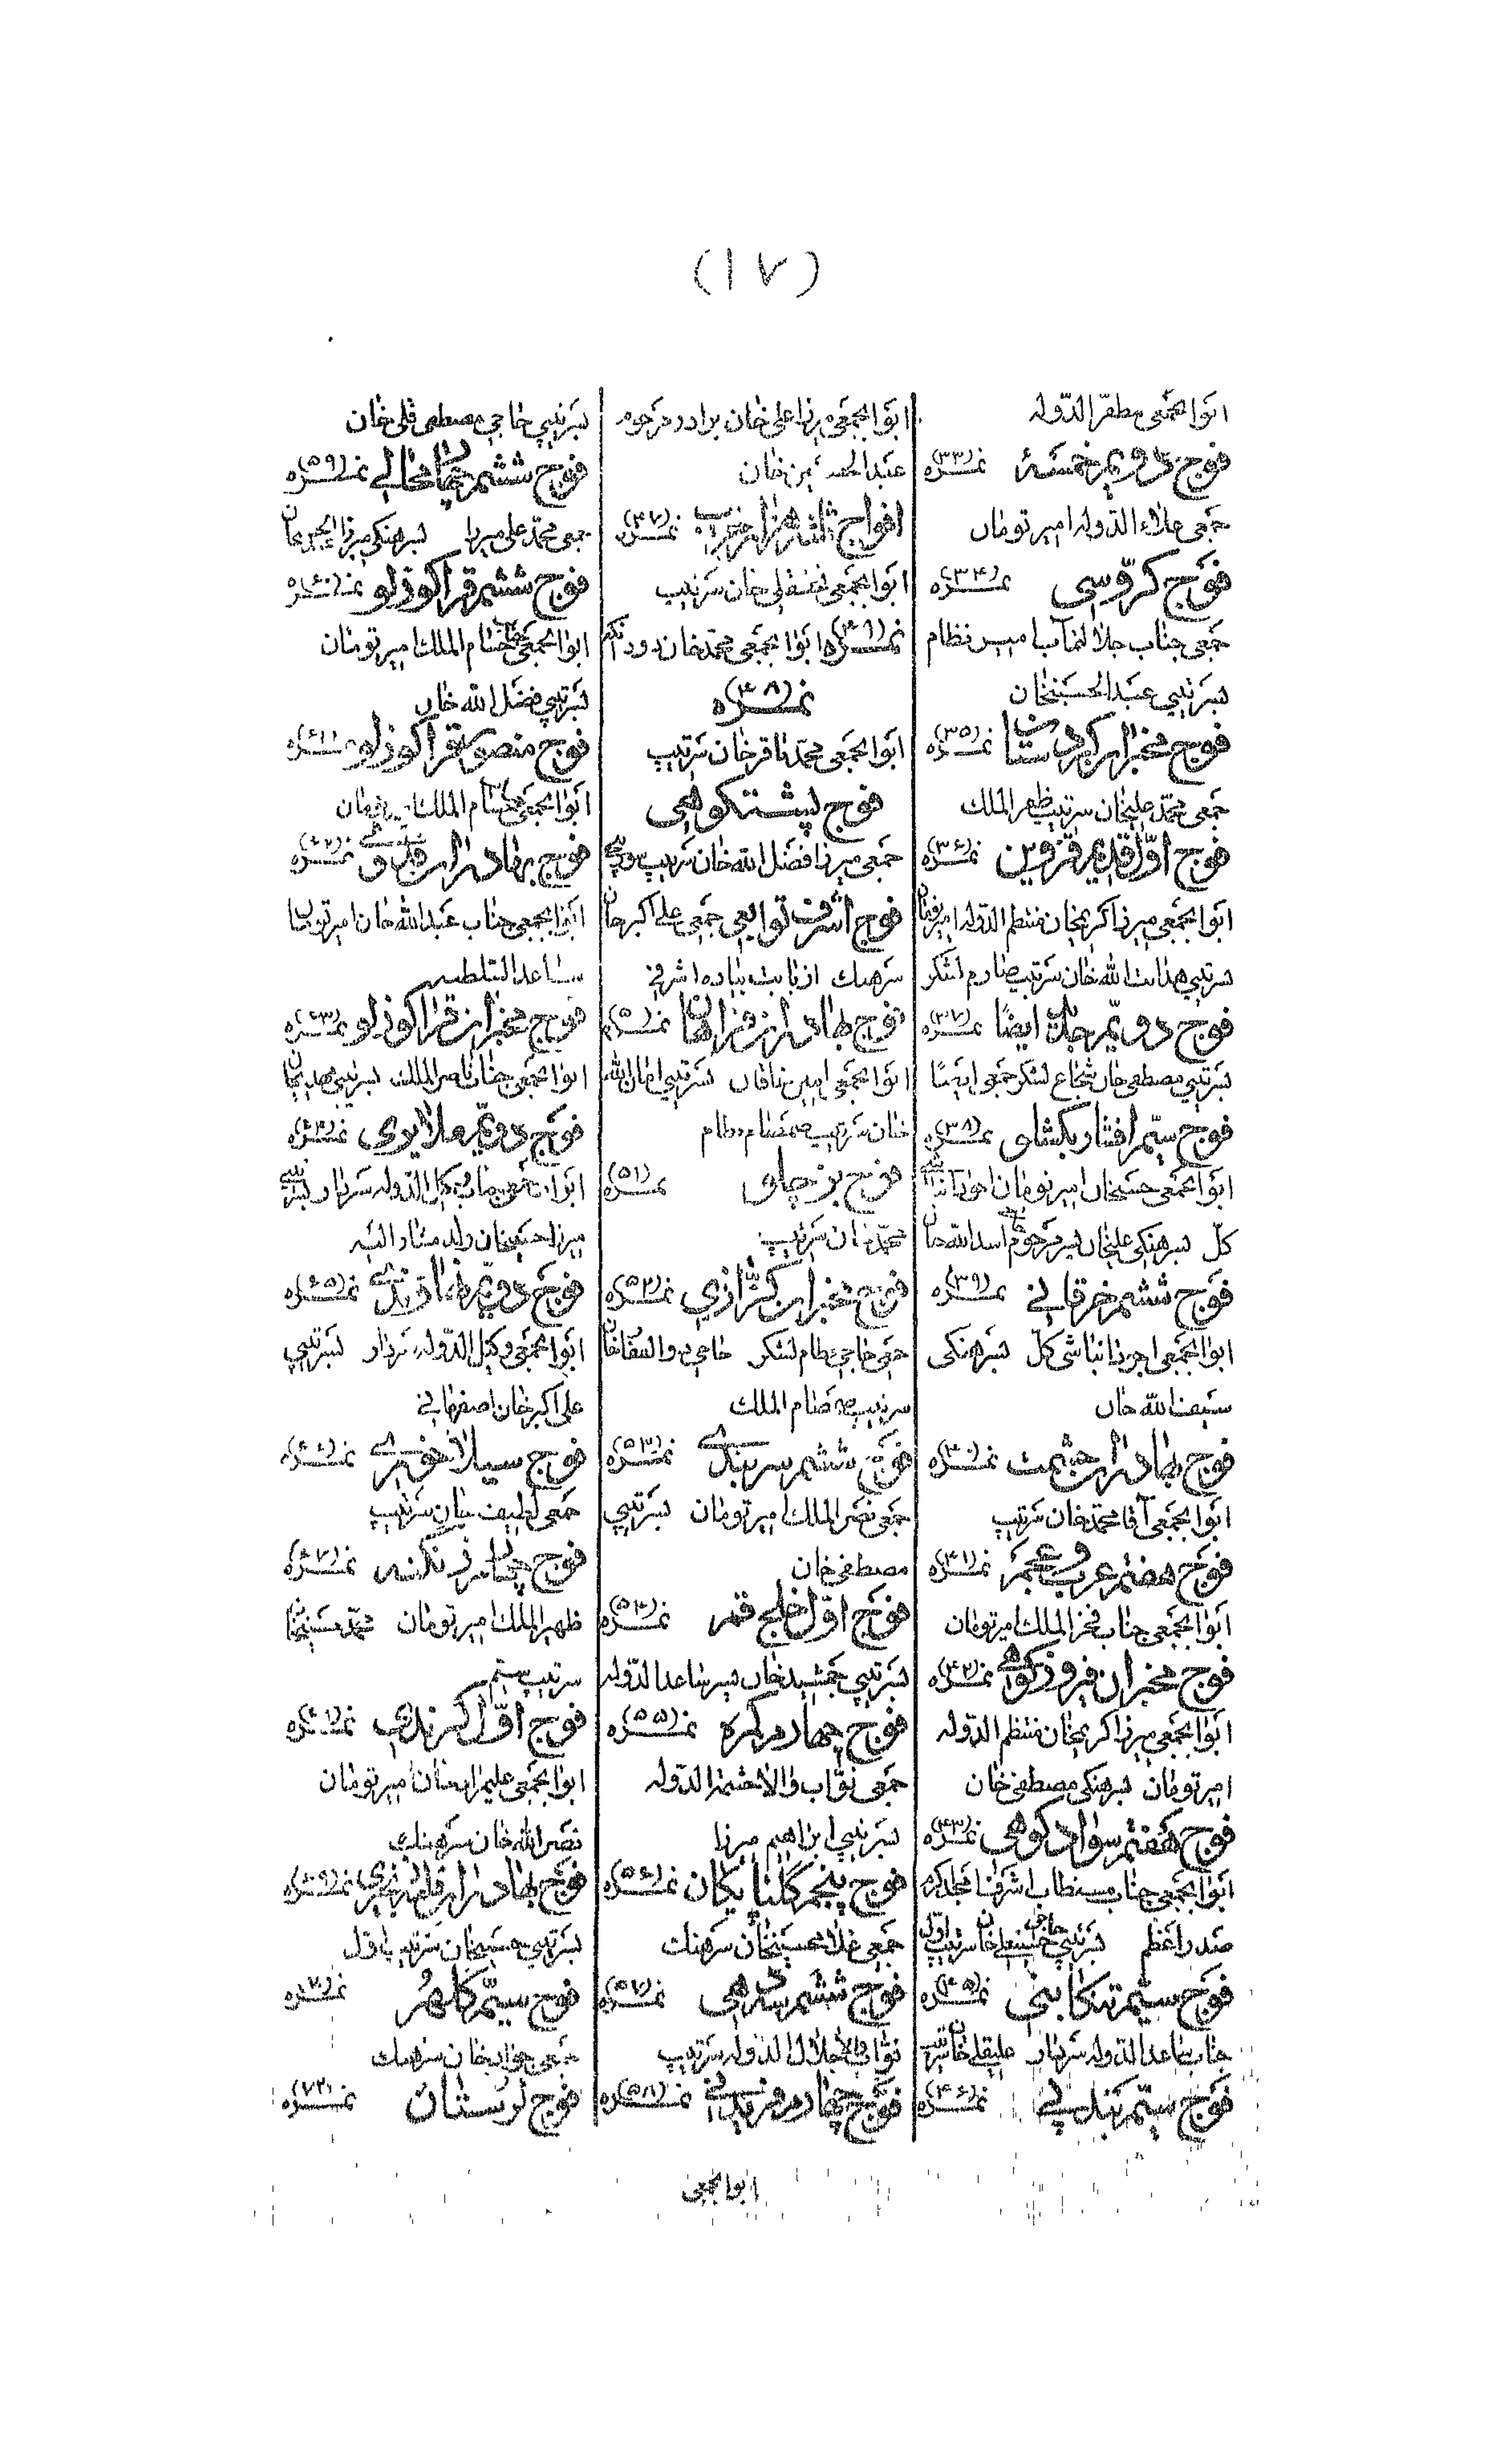 (۱۷)
ابوابجمعی مظفر الدّوله
فوج دویم خمسهٔ نمره (۳۳)
جمعی علاء الدّوله امیر تومان
فوج کرّوسی نمره (۳۴)
جمعی جناب جلالتمآب امیر نظام
بسرتیپی عبدالحسینخان
فوج مخبران کردستان نمره (۳۵)
جمعی محمّد علیخان سرتیپ ظفر الملک
فوج اوّل قدیم قزوین نمره (۳۶)
ابوابجمعی میرزا کریمخان منتظم الدّوله امیرتومان
بسرتیپی هدایت الله خان سرتیپ صارم لشکر
فوج دویّم جلال ایضًا نمره (۳۷)
بسرتیپی مصطفی خان شجاع لشکر جمعی ایضًا
فوج سیّم افشار بکشلو نمره (۳۸)
ابوابجمعی حسینخان امیر تومان
کل بسرهنگی علیخان پسر مرحوم اسدالله خان
فوج ششم خرقانی نمره (۳۹)
ابوابجمعی اجودانباشی کل بسرهنگی
سیف الله خان
فوج بهادران حشمت نمره (۴۰)
ابوابجمعی آقا محمّد خان سرتیپ
فوج هفتم عرب و عجم نمره (۴۱)
ابوابجمعی جناب فخر الملک امیر تومان
فوج مخبران فیروزکوهی نمره (۴۲)
ابوابجمعی میرزا کریمخان منتظم الدّوله
امیر تومان بسرهنگی مصطفی خان
فوج هفتم سوادکوهی نمره (۴۳)
ابوابجمعی جناب مستطاب اشرف امجد اکرم
صدر اعظم بسرتیپی حاجی حسینعلی خان سرتیپ اوّل
فوج سیّم تنکابنی نمره (۴۵)
جناب ساعد الدّوله سردار علیقلی خان سرتیپ
فوج سیّم بندپی نمره (۴۶)
ابوابجمعی میرزا علی خان برادر مرحوم
عبدالحسین خان
افواج ثلثه هزار جریب نمره (۴۷)
ابوابجمعی خان سرتیپ
نمره (۴۹) ابوابجمعی محمّد خان دودانکه
نمره (۴۸)
ابوابجمعی محمّد باقر خان سرتیپ
فوج پشتکوهی
جمعی میرزا فضل الله خان سرتیپ
فوج اشرف توابعی جمعی علی اکبر خان
سرهنگ از بابت پیاده اشرفی
فوج بهادران فراهان نمره (۵۰)
ابوابجمعی امیر خان بسرتیپی امان الله
خان سرتیپ صمصام نظام
فوج بزچلو نمره (۵۱)
محمّد خان سرتیپ
فوج مخبران کزّازی نمره (۵۲)
جمعی حاجی نظام لشکر حاجی ذوالفقار خان
سرتیپ صمصام الملک
فوج ششم سربندی نمره (۵۳)
جمعی نصر الملک امیر تومان بسرتیپی
مصطفی خان
فوج اوّل خلج قم نمره (۵۴)
بسرتیپی جمشید خان پسر ساعد الدّوله
فوج چهارم کمره نمره (۵۵)
جمعی نوّاب والا حشمة الدّوله
بسرتیپی ابراهیم میرزا
فوج پنجم گلپایگان نمره (۵۶)
جمعی غلامحسینخان سرهنگ
فوج ششم سدهی نمره (۵۷)
نوّاب والا جلال الدّوله سرتیپ
فوج چهارم فریدنی نمره (۵۸)
بسرتیپی حاجی مصطفی قلی خان
فوج ششم چهار محالی نمره (۵۹)
جمعی محمّد علی میرزا بسرهنگی میرزا
فوج ششم قراکوزلو نمره (۶۰)
ابوابجمعی حسام الملک امیر تومان
بسرتیپی فضل الله خان
فوج منصور قراکوزلو نمره (۶۱)
ابوابجمعی حسام الملک امیر تومان
فوج بهادران فدوی نمره (۶۲)
ابوابجمعی جناب عبدالله خان امیر تومان
ساعد السّلطنه
فوج مخبران قراکوزلو نمره (۶۳)
ابوابجمعی جناب ناصر الملک بسرتیپی مهدیخان
فوج دویّم ملایری نمره (۶۴)
ابوابجمعی جناب وکیل الدّوله سردار بسرتیپی
میرزا حسینخان ولد
فوج دویّم نهاوندی نمره (۶۵)
ابوابجمعی وکیل الدّوله سردار بسرتیپی
علی اکبر خان اصفهانی
فوج سیلاخوری نمره (۶۶)
جمعی لطیف خان سرتیپ
فوج چهارم زنگنه نمره (۶۷)
ظهیر الملک امیر تومان محمّد حسینخان
سرتیپ سیّم
فوج اوّل کرندی نمره (۶۸)
ابوابجمعی علیمراد خان امیر تومان
نصر الله خان سرهنگ
فوج بهادران نمره (۶۹)
بسرتیپی حسینخان سرتیپ اوّل
فوج سیّم کلهر نمره (۷۰)
جمعی جوادخان سرهنگ
فوج لرستان نمره (۷۲)
ابوابجمعی